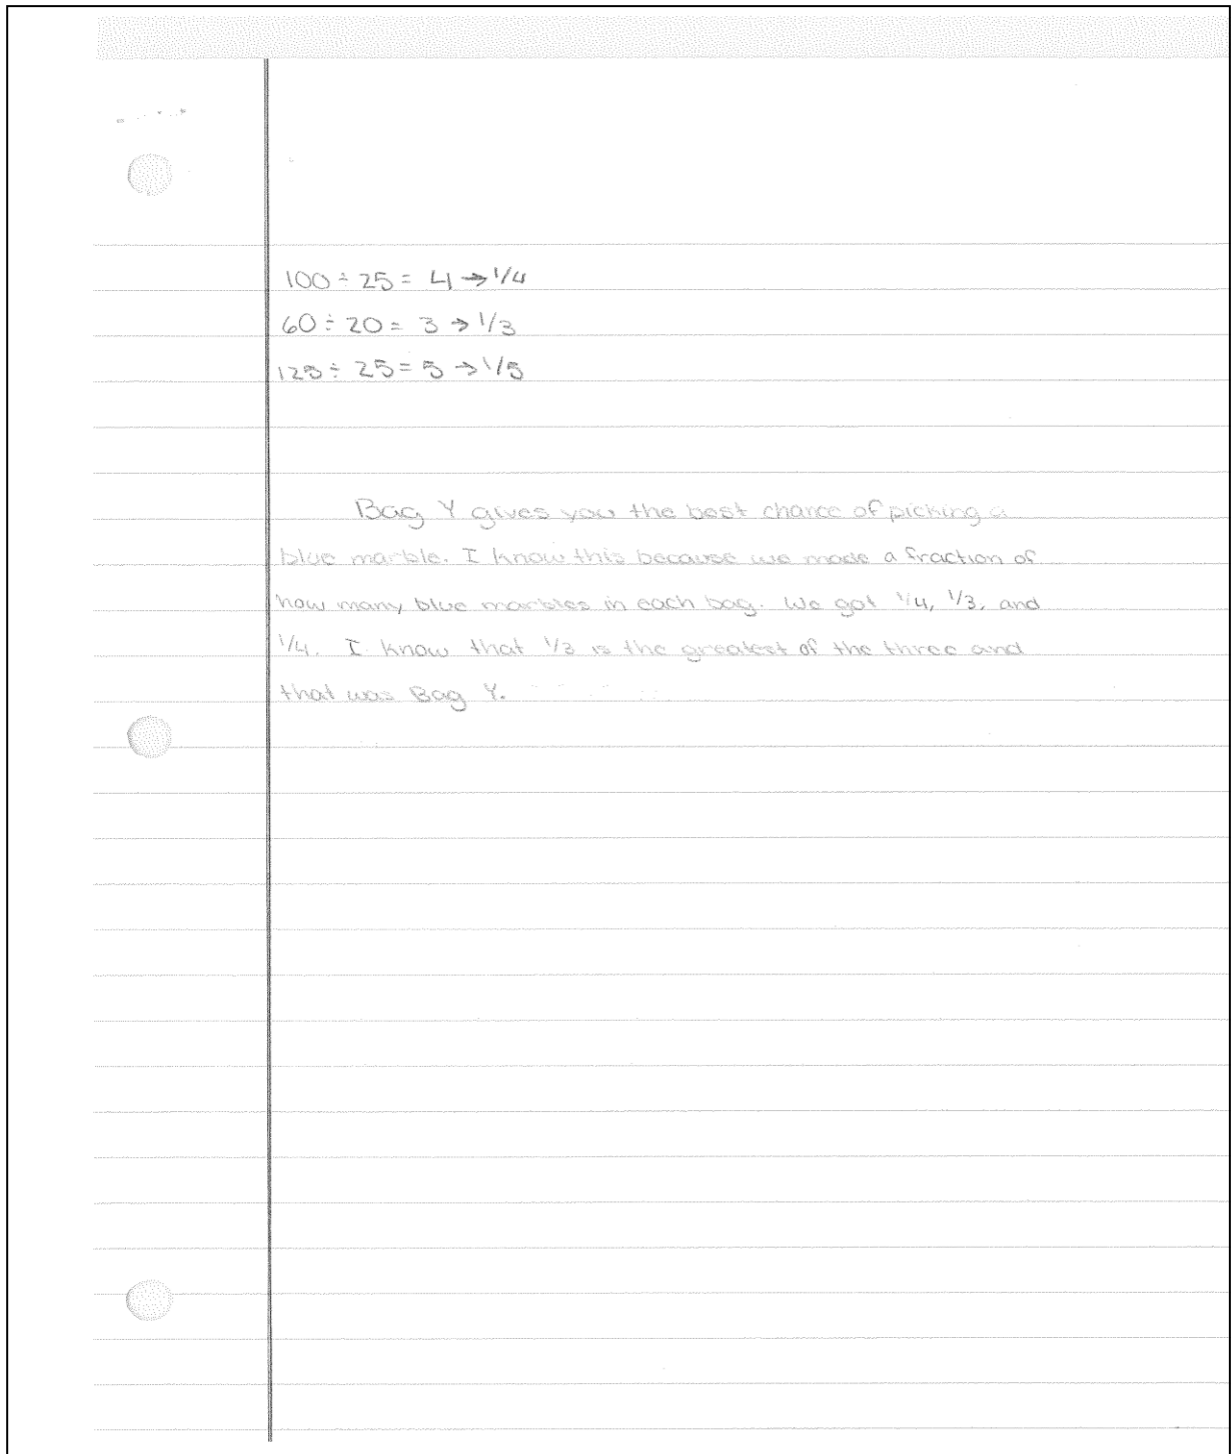 100 ÷ 25 = 4 → 1/4
60 ÷ 20 = 3 → 1/3
125 ÷ 25 = 5 → 1/5
Bag Y gives you the best chance of picking a
blue marble. I know this because we made a fraction of
how many blue marbles in each bag. We got 1/4, 1/3, and
1/4. I know that 1/3 is the greatest of the three and
that was Bag Y.